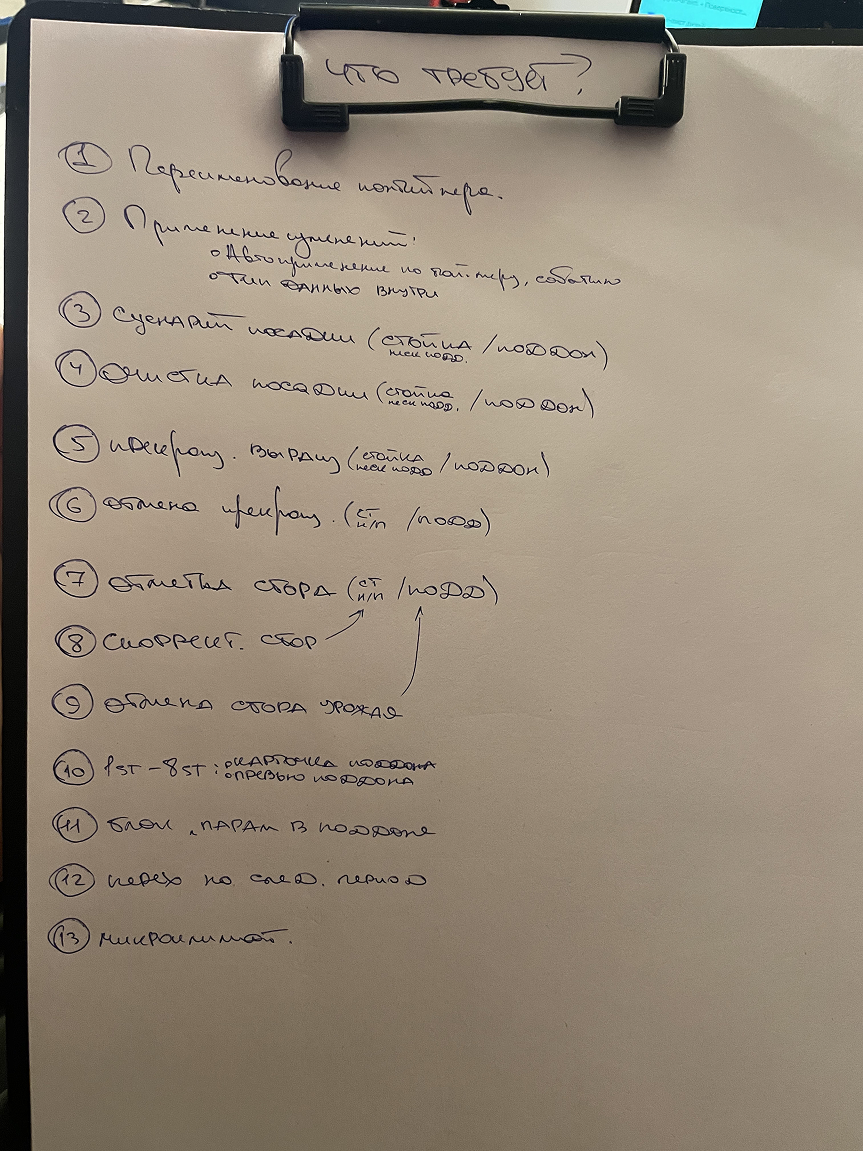 что требует?
1 Переименование контейнера.
2 Применение изменений:
Автоприменение по таймеру, событию
Тип данных внутри
3 Сценарий посадки (стойка / поддон)
неск подд.
4 Очистка посадки (стойка / поддон)
неск подд.
5 прекращ. выращ (стойка / поддон)
неск подд
6 отмена прекращ. (ст / подд)
н/п
7 отметка сбора (ст / подд)
н/п
8 скоррект. сбор
9 отмена сбора урожая
10 1st – 8st: карточка поддона
превью поддона
11 блок парам в поддоне
12 перех на след. период
13 микроклимат.